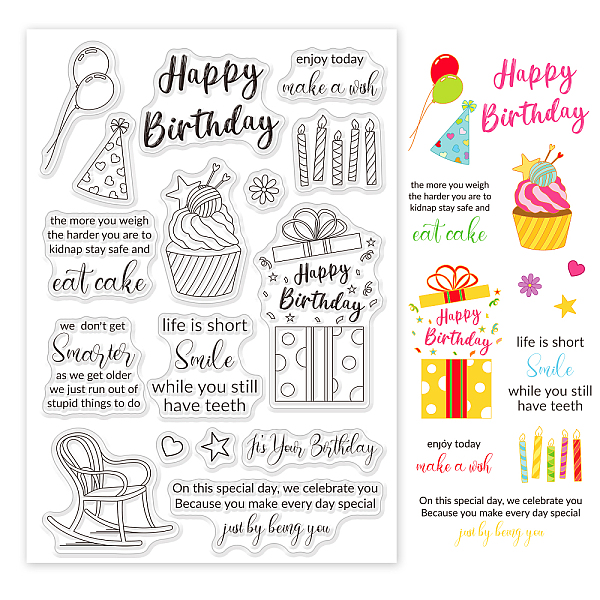 Happy
Birthday
enjoy today
make a wish
the more you weigh
the harder you are to
kidnap stay safe and
eat cake
Happy
Birthday
we don't get
Smarter
as we get older
we just run out of
stupid things to do
life is short
Smile
while you still
have teeth
It's Your Birthday
On this special day, we celebrate you
Because you make every day special
just by being you
Happy
Birthday
the more you weigh
the harder you are to
kidnap stay safe and
eat cake
Happy
Birthday
life is short
Smile
while you still
have teeth
enjoy today
make a wish
On this special day, we celebrate you
Because you make every day special
just by being you